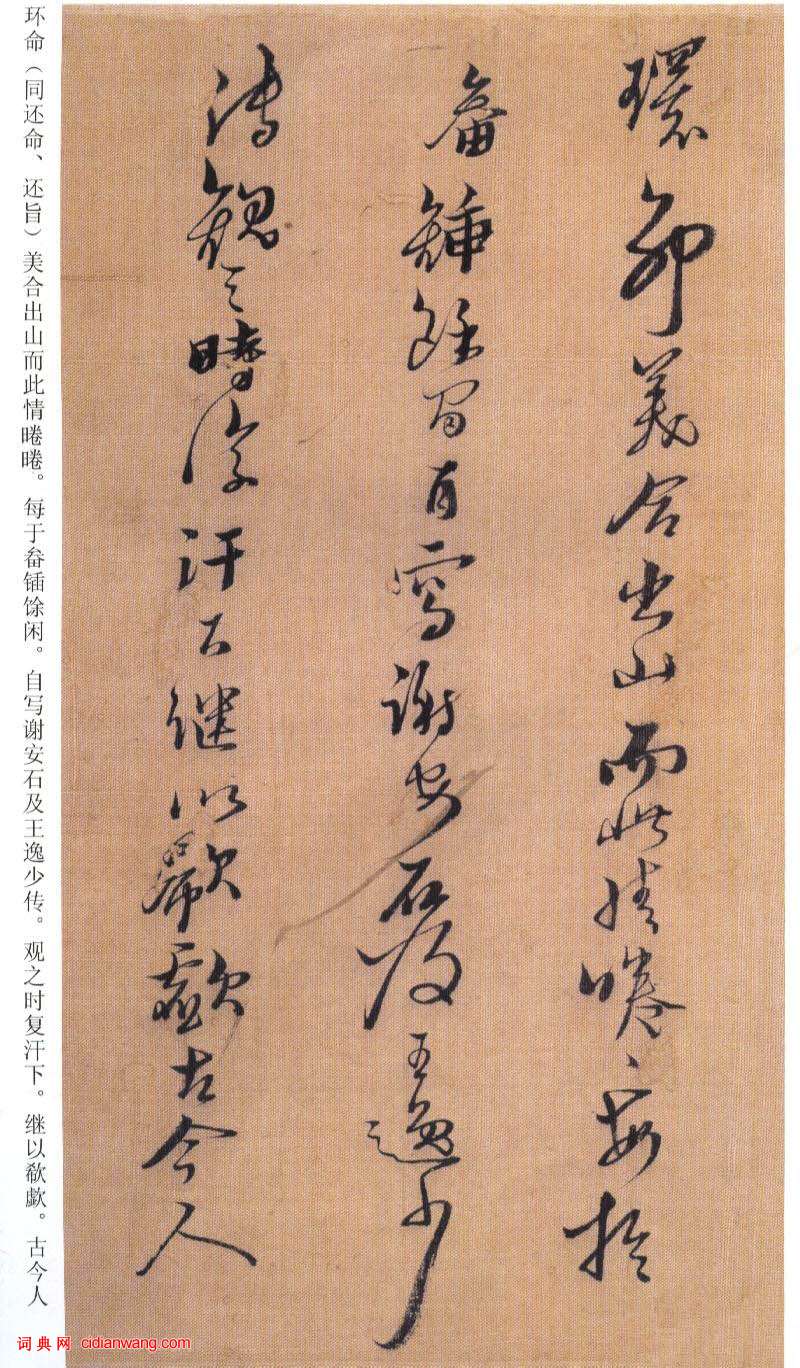 環命美合出山而此情睠〻每於
畚鍤餘閒自寫謝安石及王逸少
傳觀之時復汗下繼以欷歔古今人
环命（同还命、还旨）美合出山而此情睠睠。每于畚锸馀闲。自写谢安石及王逸少传。观之时复汗下。继以欷歔。古今人
词典网 cidianwang.com